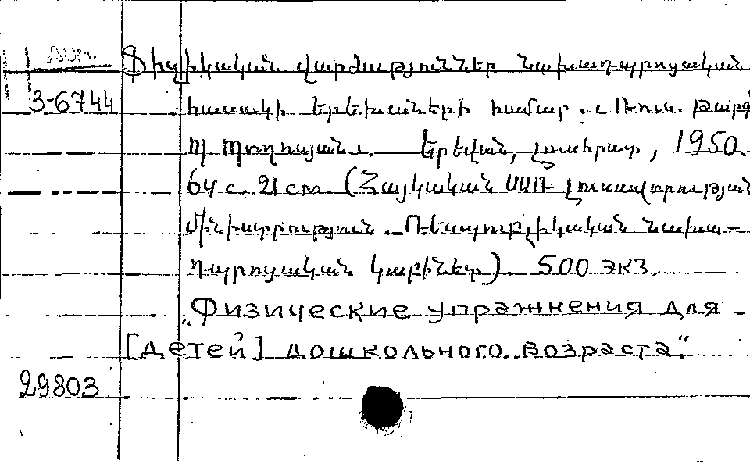 Ֆիզիկական վարժություններ նախադպրոցական
3-6744 հասակի երեխաների համար. Ռուս. թարգ
Մ. Պողոսյան. Երևան, լուսհրատ, 1950.
64 с. 21 cm (Հայկական ՍՍՌ լուսավորության
մինիստրություն. Ռեսպուբլիկական նախա-
դպրոցական կաբինետ) 500 экз.
„Физические упражнения для
[детей] дошкольного возраста".
29803